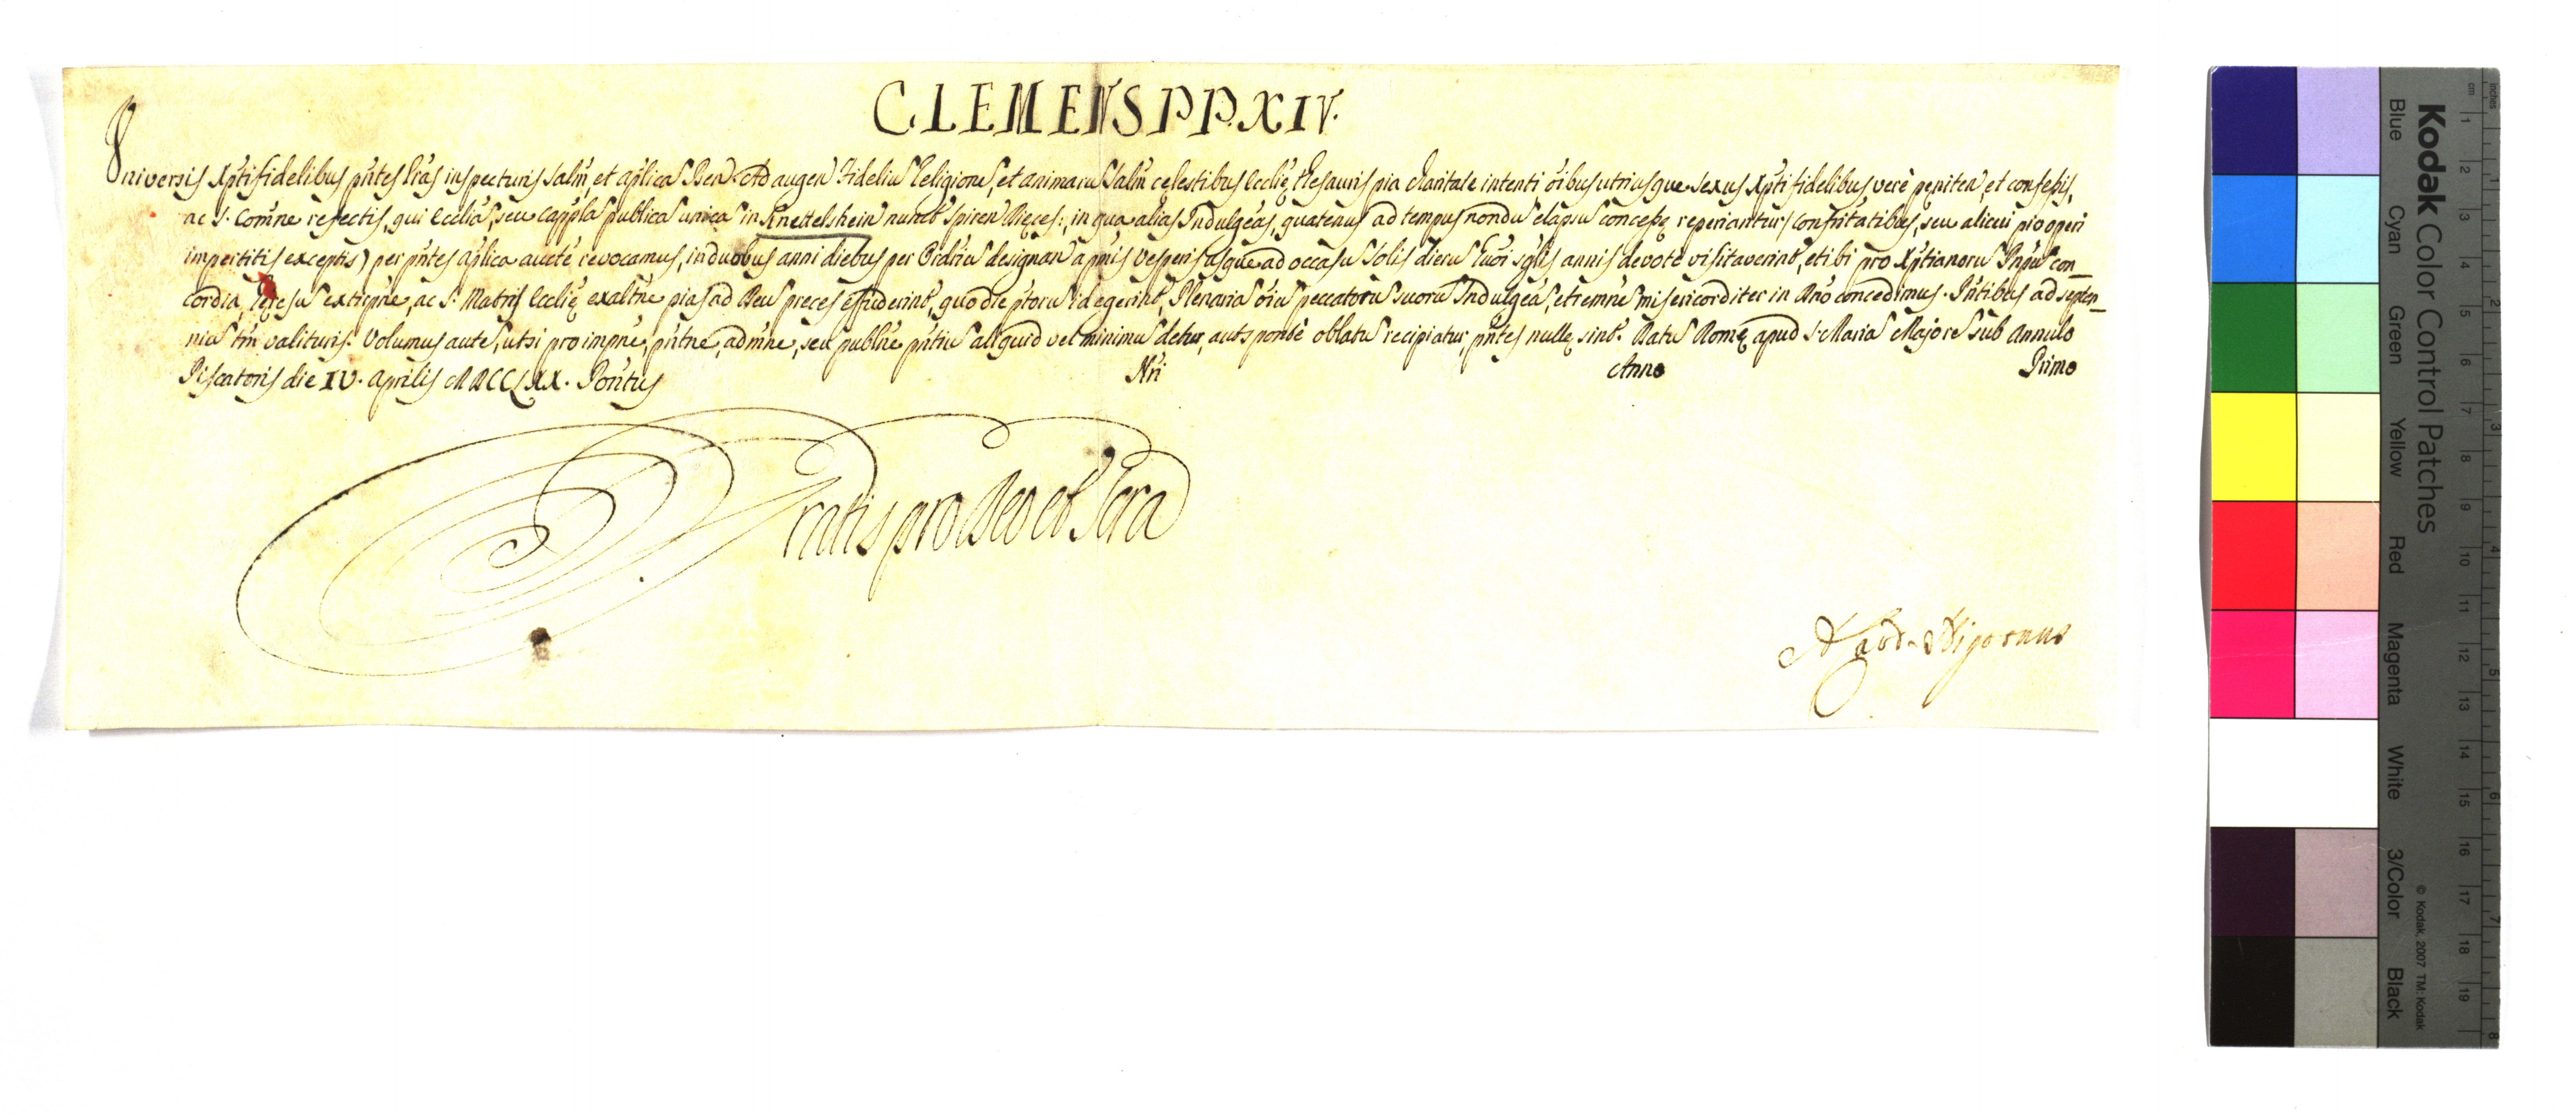 CLEMENS PP. XIV.
Universis Xpti fidelibus pntes Lras inspecturis Salm, et aplica Ben. Ad augen Fideliu Religione, et animaru Salm celestibus Ecclie thesauris pia charitate intenti oibus utriusque sexus Xpti fidelibus, vere peniten, et confessis,
ac S. Comne refectis, qui Ecclia, seu cappla publica unica in Knettelshein nuncb Spiren Dieces:, in qua alias Indulgeas, quatenus ad tempus nondu elapsu concesse reperiantur, confritatibus, seu alicui pio operi
impertitis exceptis) per pntes aplica aucte revocamus, in duobus anni diebus per Ordriu designan a pmis Vesperis usque ad occasu Solis dieru huoi sglis annis devote visitaverint, et ibi pro Xptianoru Pnpu con_
cordia, heresu extirpne, ac S. Matris Ecclie exaltne pias ad Deu preces effuderint, quo die ptoru id egerint, Plenaria oiu peccatoru suoru Indulgea, et remne misericorditer in Dno concedimus. Pntibus ad septen_
niu tm valituris. Volumus aute, ut si pro impne, pntne, admne, seu publne pntiu aliquid vel minimu detur, aut sponte oblatu recipiatur, pntes nulle sint. Datu Rome apud S. Maria Majore sub Annulo
Piscatoris die IV. Aprilis MDCCLXX. Pontus Nri Anno Primo
Gratis pro Deo et Scra
A. Card. Nigronus
Kodak Color Control Patches
© Kodak, 2007 TM: Kodak
Blue
Cyan
Green
Yellow
Red
Magenta
White
3/Color
Black
inches
cm
1 2 3 4 5 6 7 8 9 10 11 12 13 14 15 16 17 18 19
1 2 3 4 5 6 7 8